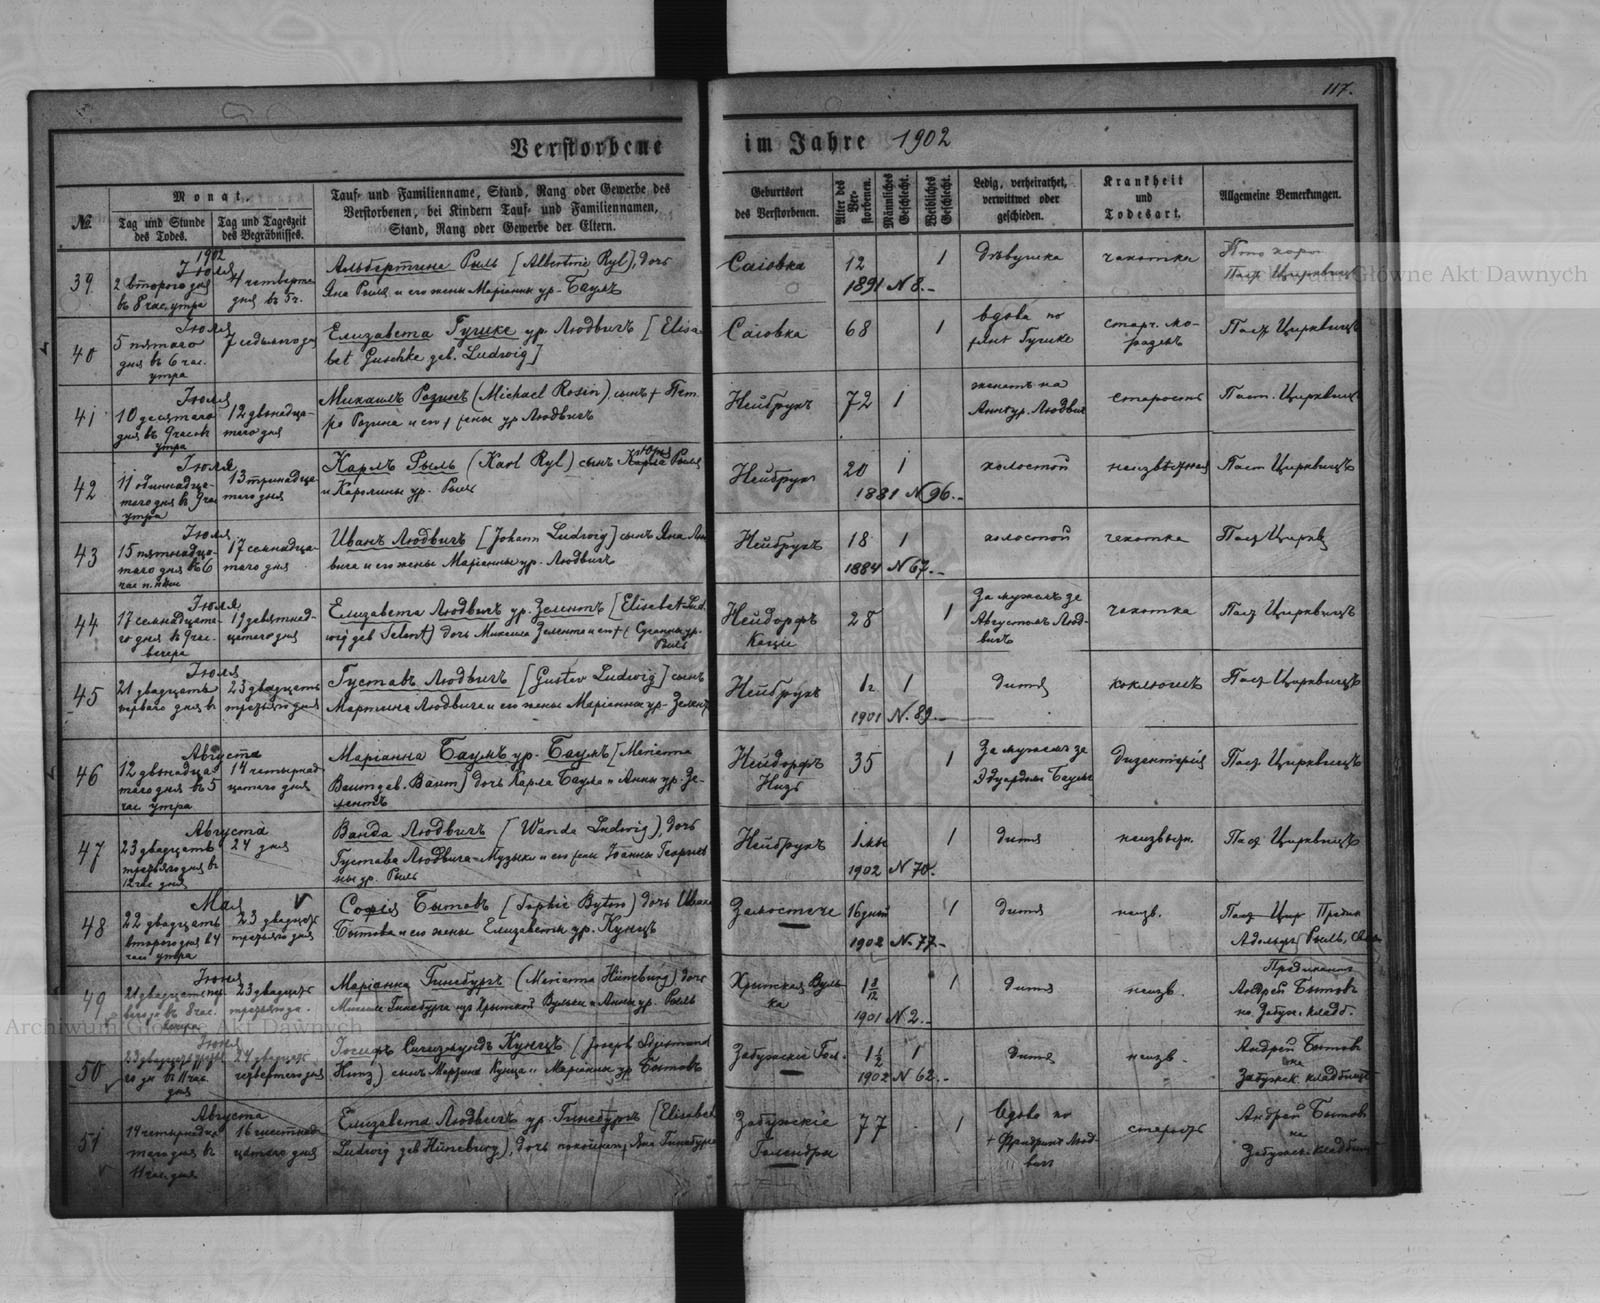 117.
Verstorbene im Jahre 1902
№.
Monat.
Tag und Stunde des Todes.
Tag und Tageszeit des Begräbnisses.
Tauf- und Familienname, Stand, Rang oder Gewerbe des
Verstorbenen, bei Kindern Tauf- und Familiennamen,
Stand, Rang oder Gewerbe der Eltern.
Geburtsort
des Verstorbenen.
Alter des Verstorbenen.
Männliches Geschlecht.
Weibliches Geschlecht.
Ledig, verheirathet,
verwittwet oder
geschieden.
Krankheit
und
Todesart.
Allgemeine Bemerkungen.
1902
Іюля
39
2 второго дня
въ 8 час. утра
4 четверто
дня въ 5 ч.
Альбертина Рыль [Albertine Ryl], дочь
Яна Рыля и его жены Маріанны ур. Баумъ
Саіовка
12
1
1891 N 8.-
Дѣвушка
чахотка
Паст Цирквицъ
Іюля
40
5 пятаго
дня въ 6 час.
утра
7 седьмого дн
Елизавета Гушке ур. Людвигъ [Elisa
bet Guschke geb. Ludwig]
Саіовка
68
1
вдова по
Гушке
старч. ма-
размъ
Паст Цирквицъ
Іюля
41
10 десятаго
дня въ 9 часов
утра
12 двѣнадца-
таго дня
Михаилъ Розинъ (Michael Rosin), сынъ + Пет
ра Розина и его + жены ур Людвигъ
Нейбрухъ
72
1
женатъ на
Аннѣ ур. Людвиг
старость
Паст. Цирквицъ
Іюля
42
11 одиннадца-
таго дня въ 9 час
утра
13 тринадца
таго дня
Карлъ Рыль (Karl Ryl) сынъ Рыля
и Каролины ур. Рыль
Нейбрух
20
1
1881 N 96.-
холостой
неизвѣстная
Паст Цирквицъ
Іюля
43
15 пятнадца-
таго дня въ 6
час п.
17 семнадца-
таго дня
Иванъ Людвигъ [Johann Ludwig] сынъ Яна Люд
вига и его жены Маріанны ур. Людвигъ
Нейбрухъ
18
1
1884 N 67.-
холостой
чахотка
Паст Цирквъ
Іюля
44
17 семнадцата-
го дня въ 9 час.
вечера
19 девятнад-
цатаго дня
Елизавета Людвигъ ур. Зелентъ [Elisabet Lud
wig geb Selent) дочь Михаила Зелента и его + Сусанны ур.
Рыль
Нейдорфъ
28
1
За мужемъ за
Августомъ Люд-
вигъ
чахотка
Паст Цирквицъ
Іюля
45
21 двадцать
перваго дня в
23 двадцать
третьяго дня
Густавъ Людвигъ [Gustav Ludwig] сынъ
Мартина Людвига и его жены Маріанны ур. Зелентъ
Нейбрухъ
1 г
1
1901 N. 89.-
дитя
коклюшъ
Паст Цирквицъ
Августа
46
12 двѣнадца
таго дня въ 5
час утра
14 четырнад
цатаго дня
Маріанна Баумъ ур. Баумъ [Marianna
Baum geb. Baum] дочь Карла Баума и Анны ур. Зе-
лентъ
Нейдорфъ
35
1
За мужемъ за
Эдуардомъ Баумъ
Дизентерія
Паст Цирквицъ
Августа
47
23 двадцать
третьяго дня в
12 час дня
24 дня
Ванда Людвигъ [Wanda Ludwig), дочь
Густава Людвига-Музыки и его жены Іоанны Георгі
ны ур. Рыль
Нейбрухъ
1 мѣс
1
1902 N 70.-
дитя
неизвѣстн.
Паст Цирквицъ
Мая
48
22 двадцать
второго дня в 4
час утра
23 двадцать
третьяго дня
Софія Бытовъ [Sophie Bytow) дочь Ивана
Бытова и его жены Елизаветы ур. Кунцъ
Замостече
16 дней
1
1902 N. 77.-
дитя
неизв.
Паст Цир
Адольфъ Рыль,
Іюня
49
21 двадцать пер
ваго дн въ 8 час.
вечера
23 двадцать
третьяго дн.
Маріанна Гинебургъ (Marianna Hüneburg) дочь
Михаила Гинебурга изъ Хрыткой Вульки и Анны ур. Рыль
Вуль-
ка
1 8/12
1
1901 N 2.-
дитя
неизв.
Андрей Бытовъ
на Забуж. кладб.
Іюля
50
въ 11 час.
дня
24 двадцать
четвертаго дня
Іосифъ Сигизмундъ Кунцъ [Joseph Sigismund
Kunz) сынъ Мартина Кунца и Маріанны ур Бытовъ
Забужскій Гол.
1 1/2
1
1902 N 62.-
дитя
неизв.
Андрей Бытовъ
на
Забужск. кладбищѣ
Августа
51
14 четырнадца
таго дня въ
11 час. дня
16 шестнад
цатаго дня
Елизавета Людвигъ ур. Гинебургъ [Elisabet
Ludwig geb Hüneburg), дочь покойнаго Яна Гинебурга
Забужскіе
Голендры
77
1
Вдова по
+ Фридрихъ Люд-
вигъ
старость
Андрей Бытовъ
на
Забужск. кладбищѣ
Archiwum Główne Akt Dawnych
Archiwum Główne Akt Dawnych